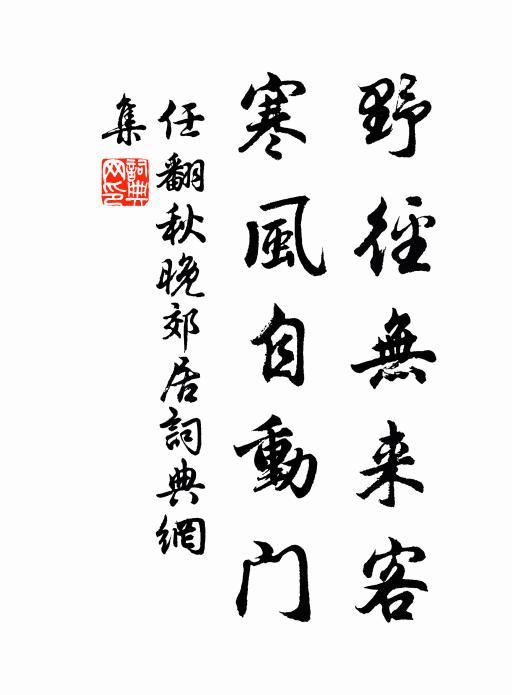 野径無来客
寒風自動门
任翻秋晚郊居詞典網
集
詞典
网印